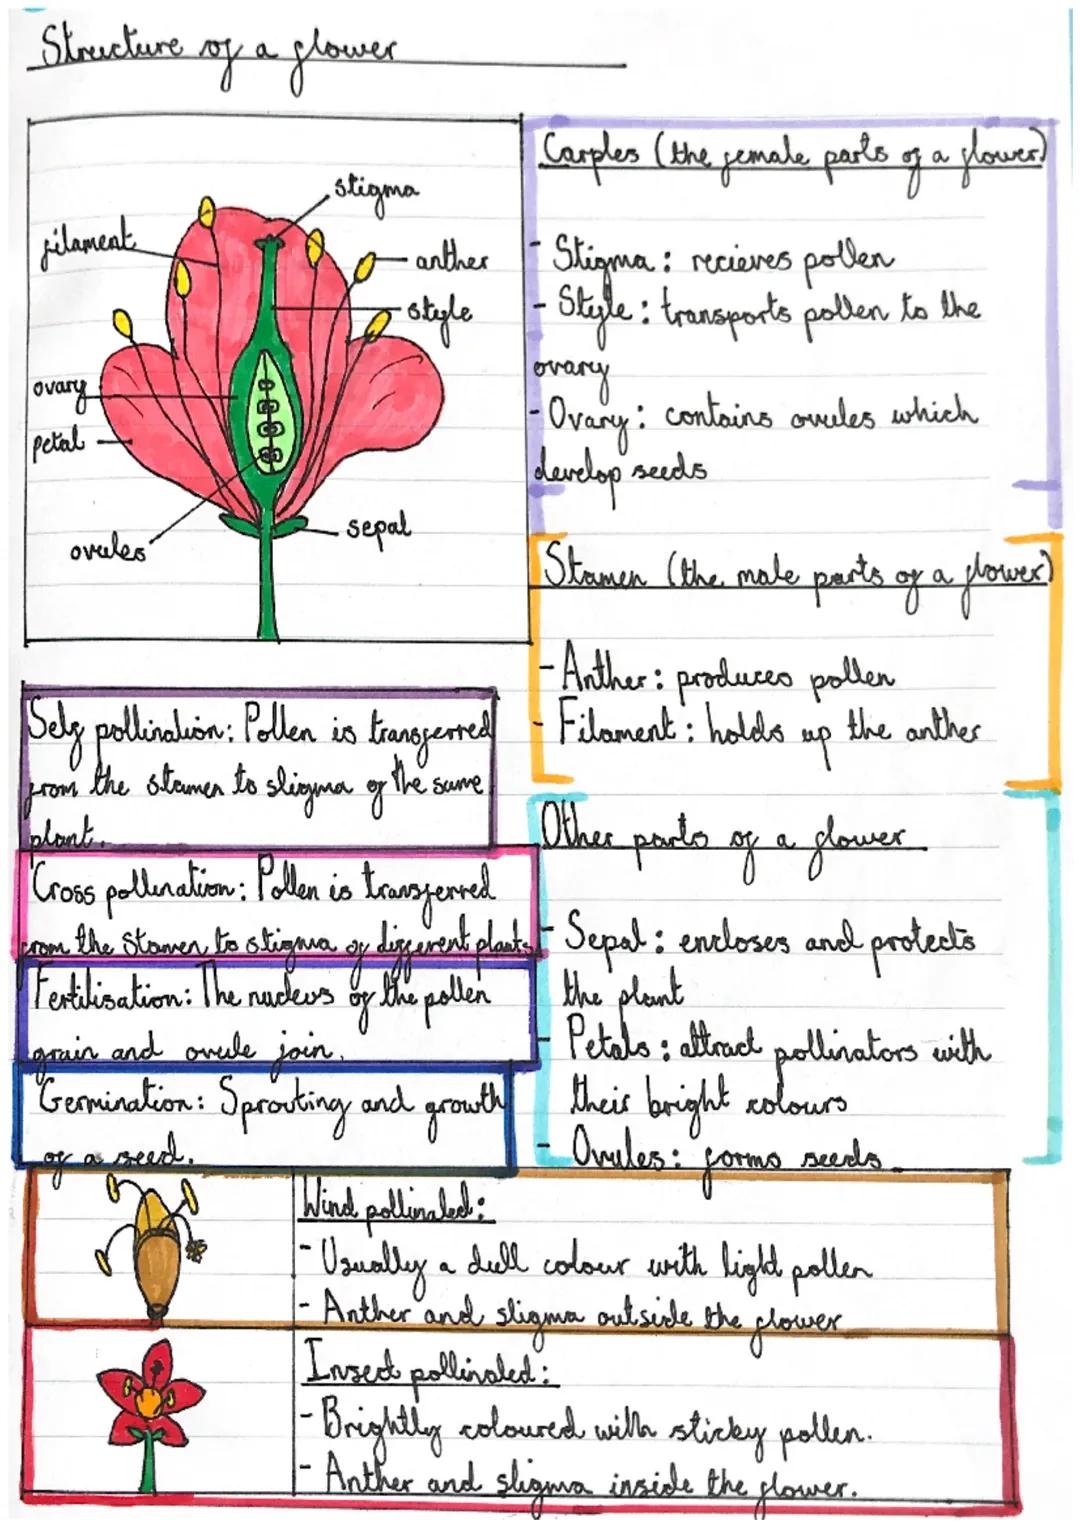 Structure of a flower
stigma
filament
anther
style
ovary
petal
sepal
ovules
Carples (the female parts of a flower)
- Stigma: recieves pollen
- Style: transports pollen to the
ovary
- Ovary: contains ovules which
develop seeds
Stamen (the male parts of a flower)
- Anther: produces pollen
- Filament: holds up the anther
Other parts of a flower
- Sepal: encloses and protects
the plant
- Petals: attract pollinators with
their bright colours
- Ovules: forms seeds
Self pollination: Pollen is transferred
from the stamen to stigma of the same
plant.
Cross pollination: Pollen is transferred
from the stamen to stigma of different plants
Fertilisation: The nucleus of the pollen
grain and ovule join.
Germination: Sprouting and growth
of a seed.
Wind pollinated:
- Usually a dull colour with light pollen
- Anther and stigma outside the flower
Insect pollinated:
- Brightly coloured with sticky pollen.
- Anther and stigma inside the flower.